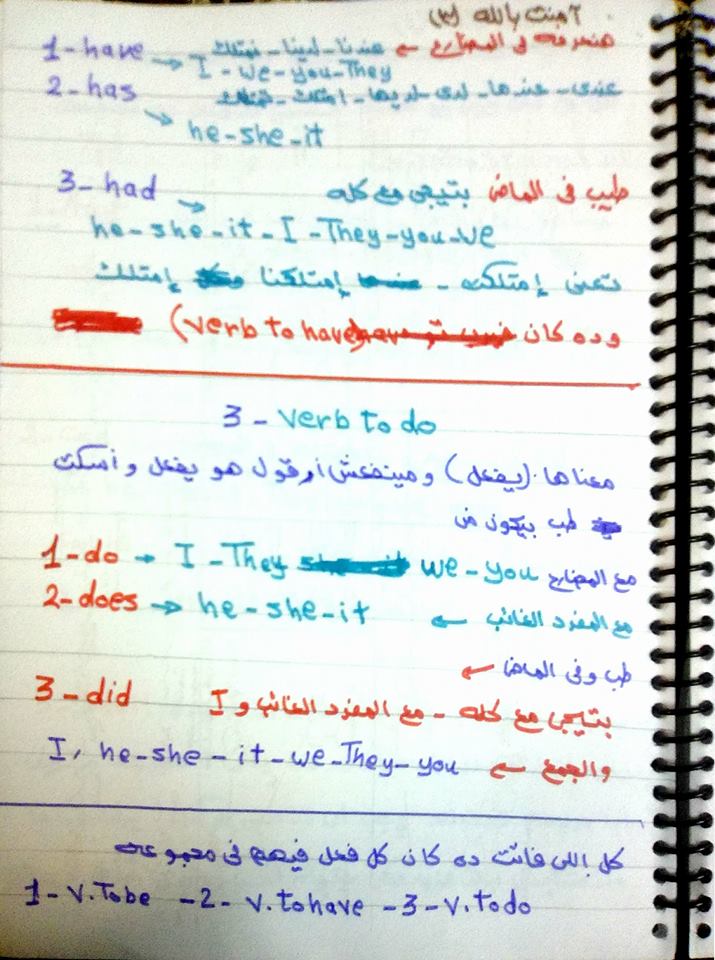 آمنت بالله (٣)
1- have → هنعرفه فى المضارع ← عندنا - لدينا - نمتلك
I - we - you - They
2- has عندى - عندها - لدى - لديها - امتلك - تمتلك
→ he - she - it
3- had → طيب فى الماضى بتيجى مع كله
he - she - it - I - They - you - we
تعنى إمتلكت - إمتلكنا إمتلك
وده كان (verb to have
3 - verb to do
معناها (يفعل) ومينفعش أقول هو يفعل وأسكت
طب بيكون من
1- do → I - They we - you مع المضارع
2- does → he - she - it مع المفرد الغائب ←
طب وفى الماضى ←
3- did بتيجى مع كله - مع المفرد الغائب و I
والجمع ← I, he - she - it - we - They - you
كل اللى فاتت ده كان كل فعل فيهم فى مجموعه
1- V.Tobe - 2- V.tohave - 3- V.todo